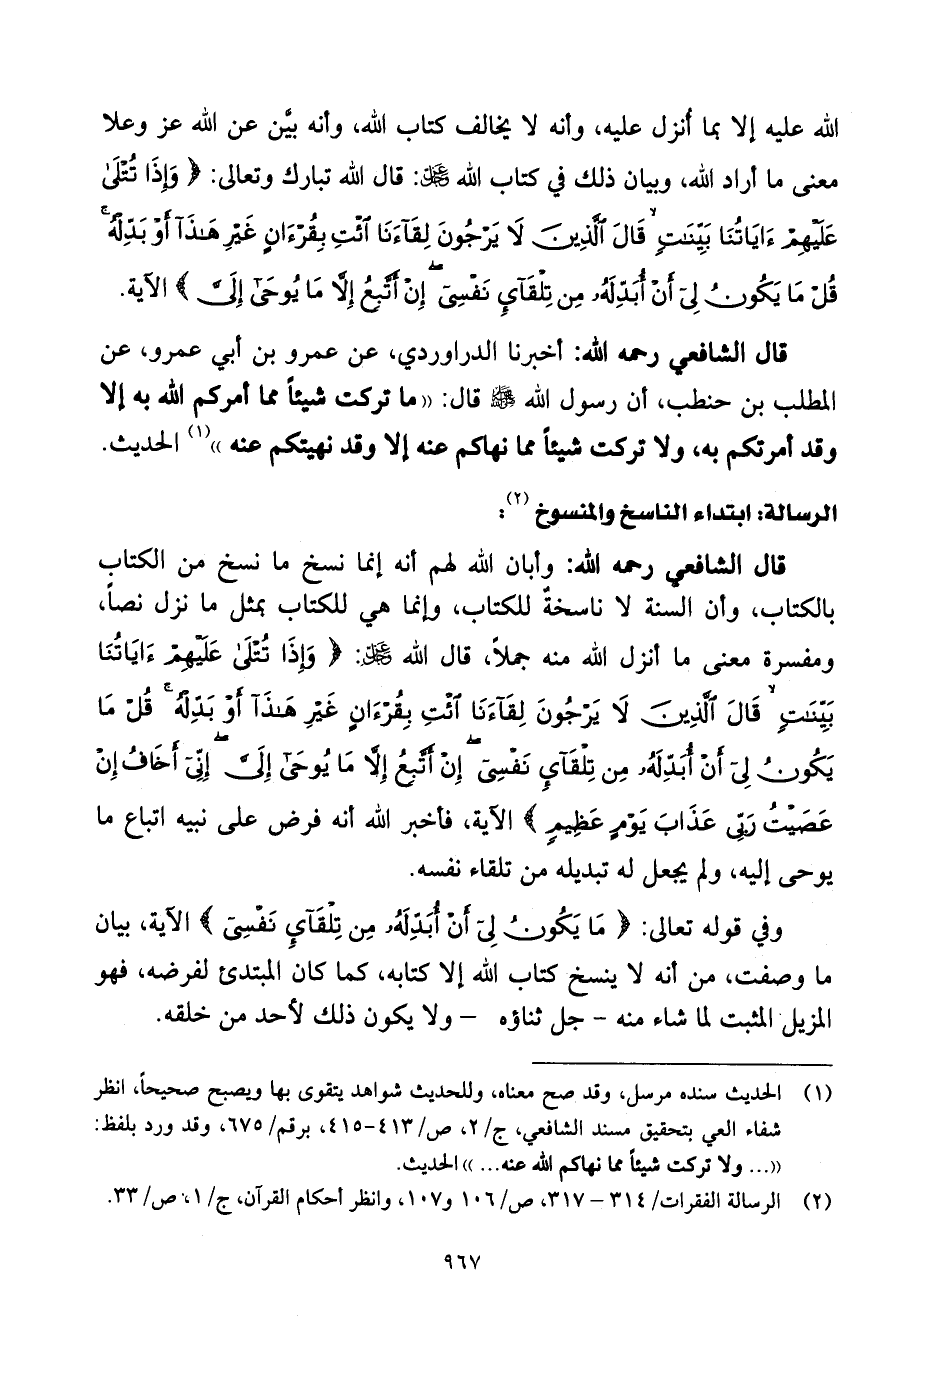 الله عليه إلا بما أُنزل عليه، وأنه لا يخالف كتاب الله، وأنه بيَّن عن الله عز وعلا
معنى ما أراد الله، وبيان ذلك في كتاب الله ﷻ: قال الله تبارك وتعالى: ﴿ وَإِذَا تُتْلَىٰ
عَلَيْهِمْ ءَايَاتُنَا بَيِّنَـٰتٍ ۙ قَالَ ٱلَّذِينَ لَا يَرْجُونَ لِقَآءَنَا ٱئْتِ بِقُرْءَانٍ غَيْرِ هَـٰذَآ أَوْ بَدِّلْهُ ۚ
قُلْ مَا يَكُونُ لِىٓ أَنْ أُبَدِّلَهُۥ مِن تِلْقَآىِٕ نَفْسِىٓ ۖ إِنْ أَتَّبِعُ إِلَّا مَا يُوحَىٰٓ إِلَىَّ ﴾ الآية.
قال الشافعي رحمه الله: أخبرنا الدراوردي، عن عمرو بن أبي عمرو، عن
المطلب بن حنطب، أن رسول الله ﷺ قال: «ما تركت شيئاً مما أمركم الله به إلا
وقد أمرتكم به، ولا تركت شيئاً مما نهاكم عنه إلا وقد نهيتكم عنه »(١) الحديث.
الرسالة: ابتداء الناسخ والمنسوخ (٢):
قال الشافعي رحمه الله: وأبان الله لهم أنه إنما نسخ ما نسخ من الكتاب
بالكتاب، وأن السنة لا ناسخةٌ للكتاب، وإنما هي للكتاب بمثل ما نزل نصاً،
ومفسرة معنى ما أنزل الله منه جملاً، قال الله ﷻ: ﴿ وَإِذَا تُتْلَىٰ عَلَيْهِمْ ءَايَاتُنَا
بَيِّنَـٰتٍ ۙ قَالَ ٱلَّذِينَ لَا يَرْجُونَ لِقَآءَنَا ٱئْتِ بِقُرْءَانٍ غَيْرِ هَـٰذَآ أَوْ بَدِّلْهُ ۚ قُلْ مَا
يَكُونُ لِىٓ أَنْ أُبَدِّلَهُۥ مِن تِلْقَآىِٕ نَفْسِىٓ ۖ إِنْ أَتَّبِعُ إِلَّا مَا يُوحَىٰٓ إِلَىَّ ۖ إِنِّىٓ أَخَافُ إِنْ
عَصَيْتُ رَبِّى عَذَابَ يَوْمٍ عَظِيمٍ ﴾ الآية، فأخبر الله أنه فرض على نبيه اتباع ما
يوحى إليه، ولم يجعل له تبديله من تلقاء نفسه.
وفي قوله تعالى: ﴿ مَا يَكُونُ لِىٓ أَنْ أُبَدِّلَهُۥ مِن تِلْقَآىِٕ نَفْسِىٓ ﴾ الآية، بيان
ما وصفت، من أنه لا ينسخ كتاب الله إلا كتابه، كما كان المبتدئ لفرضه، فهو
المزيل المثبت لما شاء منه - جل ثناؤه - ولا يكون ذلك لأحد من خلقه.
(١) الحديث سنده مرسل، وقد صح معناه، وللحديث شواهد يتقوى بها ويصبح صحيحاً، انظر
شفاء العي بتحقيق مسند الشافعي، ج/٢، ص/٤١٣-٤١٥، برقم/٦٧٥، وقد ورد بلفظ:
«... ولا تركت شيئاً مما نهاكم الله عنه... » الحديث.
(٢) الرسالة الفقرات/ ٣١٤ - ٣١٧، ص/ ١٠٦ و١٠٧، وانظر أحكام القرآن، ج/ ١، ص/ ٣٣.
٩٦٧